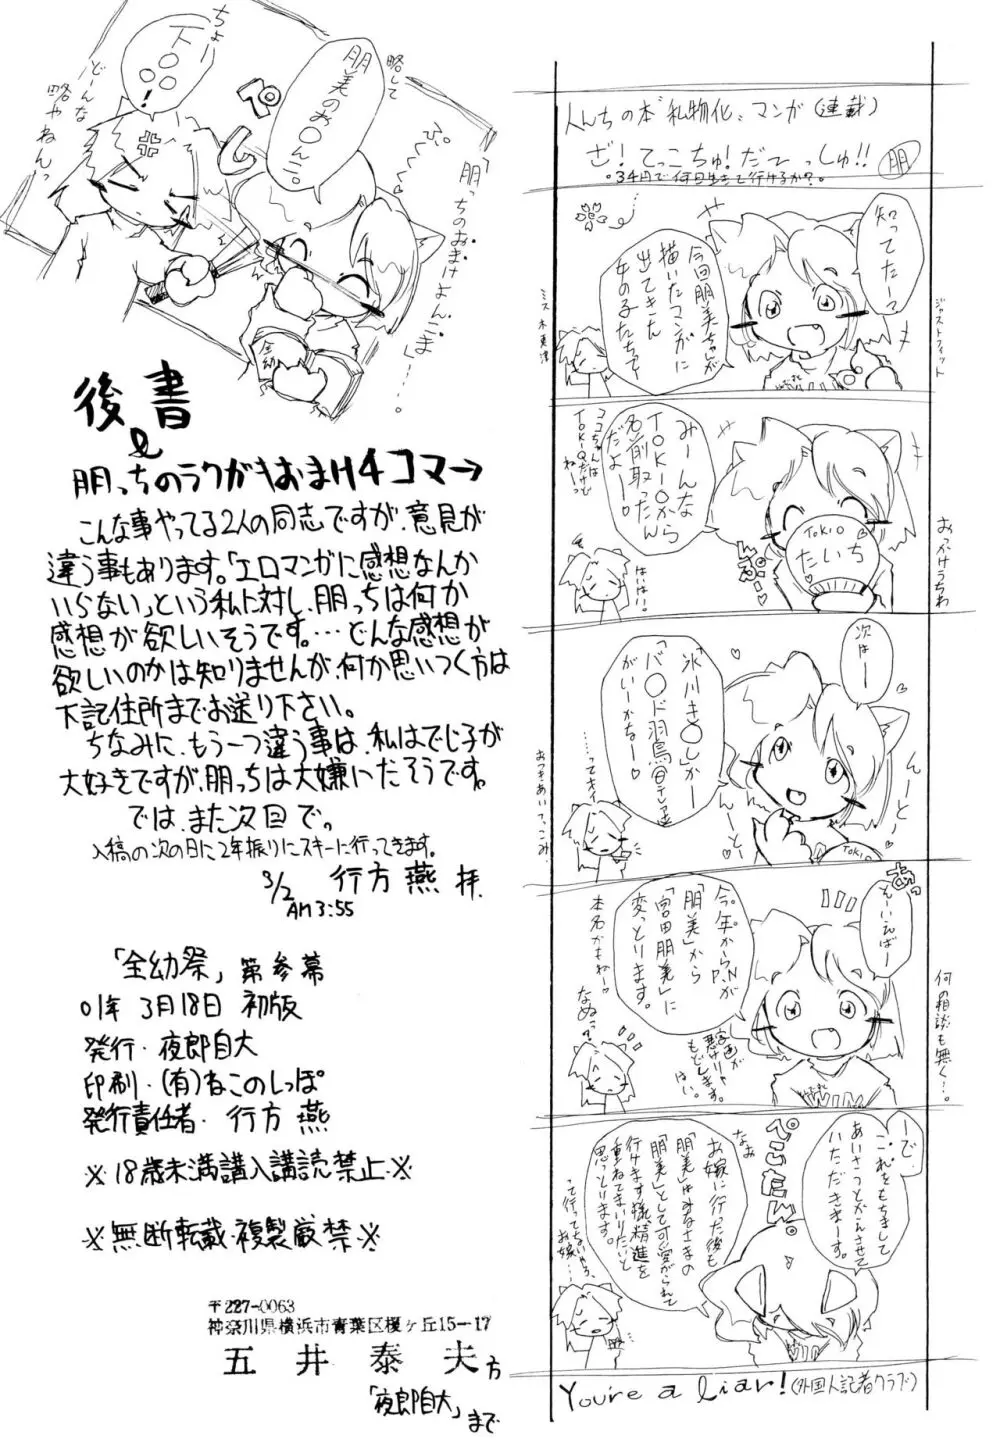 「朋っちのおまけよんこま」…。
ぷくくく♡
略して
朋美のお○んこ。
ぷし
ちょー
下○○○!
どーんな
略やねんっ
全幼
後書
&
朋っちのラクガキおまけ4コマ→
こんな事やってる2人の同志ですが、意見が
違う事もあります。「エロマンガに感想なんか
いらない」という私に対し、朋っちは何か
感想が欲しいそうです。…どんな感想が
欲しいのかは知りませんが、何か思いつく方は
下記住所までお送り下さい。
ちなみに、もう一つ違う事は、私はでじ子が
大好きですが、朋っちは大嫌いだそうです。
では、また次回で。
入稿の次の日に2年振りにスキーに行ってきます。
3/2
AM3:55
行方 燕 拝.
「全幼祭」第参幕
01年 3月18日 初版
発行・夜郎自大
印刷・(有)ねこのしっぽ
発行責任者・行方 燕
※18歳未満購入講読禁止※
※無断転載・複製厳禁※
〒227-0063
神奈川県横浜市青葉区榎ヶ丘15-17
五井泰夫方
「夜郎自大」まで
人んちの本"私物化"マンガ(連載)
ざ!てっこちゅ!だてっしゅ!! 朋
。34円で何日生きて行けるか?。
知ってたー?
今回朋美ちゃんが
描いたマンガに
出てきた
女の子たちって
ミス木更津
ジャストフィット
みーんな
TOKIOから
名前取ったん
だよー。
ココちゃんは
TOKIOだけど
ねーっ
TOKIO
たいち
はいはい。
おっかけうちわ
次はー
「氷川き○し」か
「バ○ド羽鳥@テレ邊」
がいーかなー♡
んーとんーと♡
TOKIO
…ってオイ
おつきあいてっこみ
あっ
そーいえばー
今年からP.Nが
「朋美」から
「宮田朋美」に
変っとります。
字画が
悪けりゃ
もどします。
はい。
本名かもねー♡
なぬっ?
何の相談も無く…。
ーで
これをもちまして
あいさつとかえさせて
いただきまーす。
ぺこたん。
なお
お嫁に行った後も
「朋美」はみなさまの
「朋美」として可愛がられて
行けます様、精進を
重ねてまいりたいと
思っとります。
って行ってないやろ、
お嫁…。
You're a liar!(外国人記者クラブ)